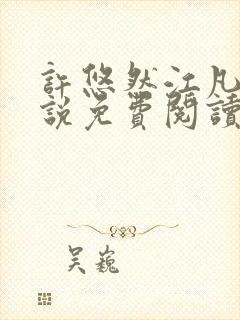 許悠然江凡
說免費閱讀
吴巍